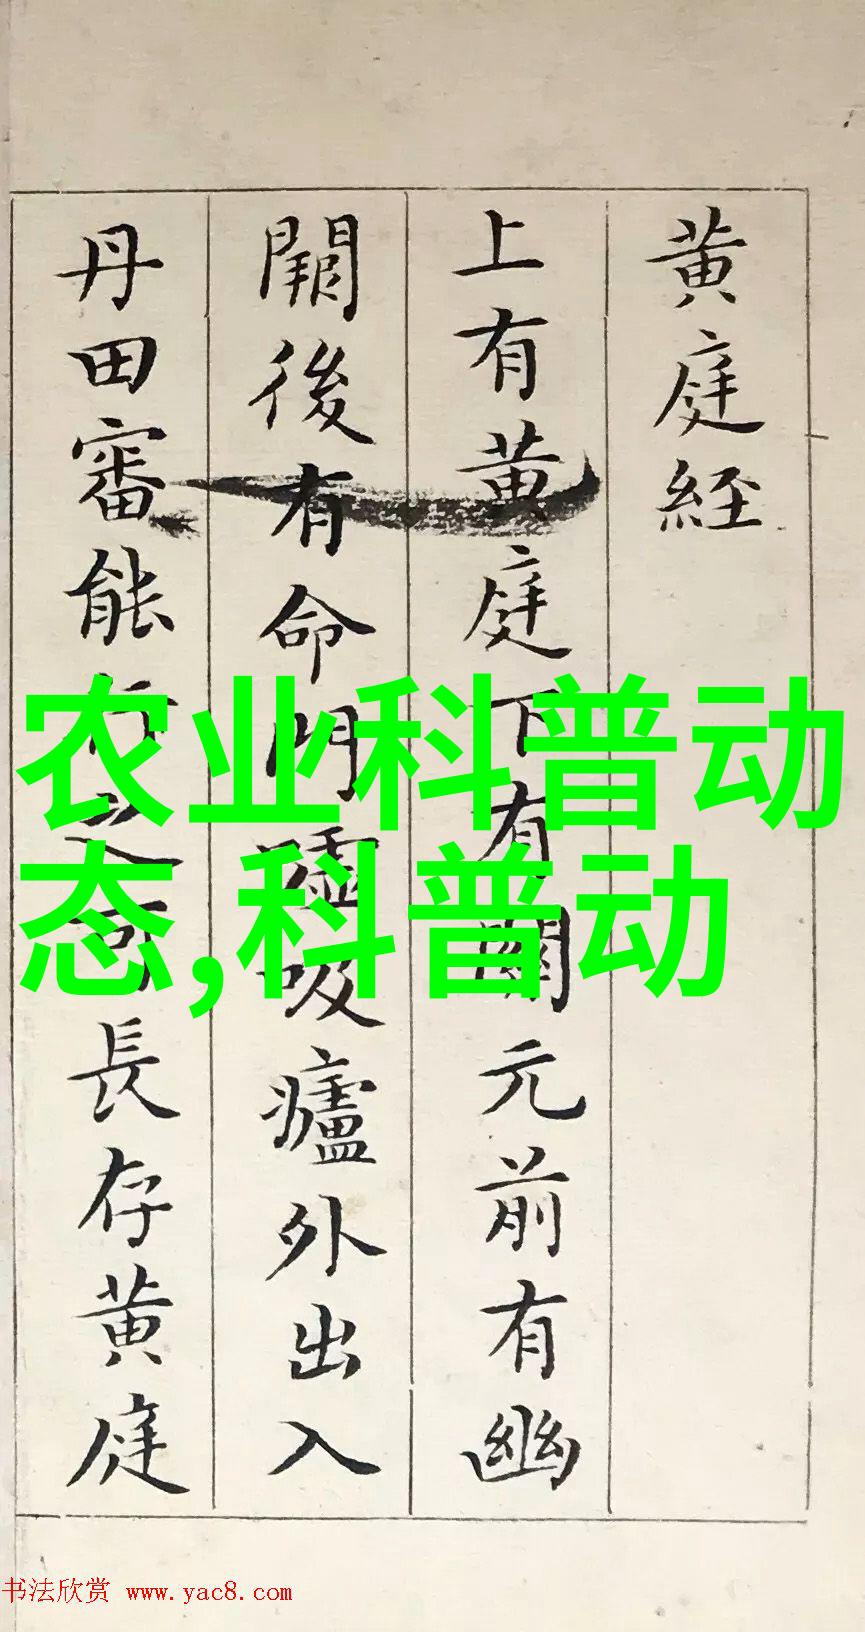 黄庭経
上有黄庭下有關元前有幽
闕後有命門嘘吸廬外出入
丹田審能行之可長存黄庭
农业科普动
态,科普动
书法欣赏 www.yac8.com